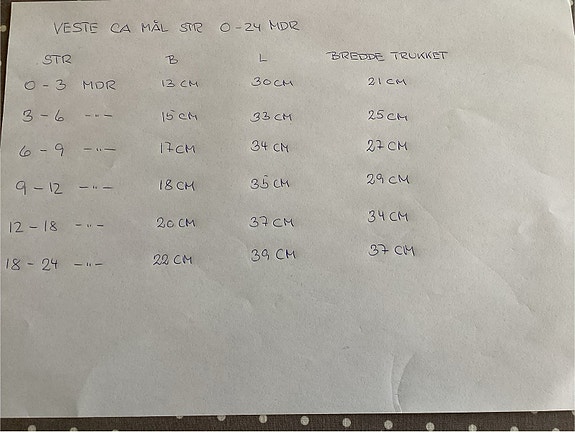 VESTE CA MÅL STR 0-24 MDR
STR B L BREDDE TRUKKET
0-3 MDR 13 CM 30 CM 21 CM
3-6 -"- 15 CM 33 CM 25 CM
6-9 -"- 17 CM 34 CM 27 CM
9-12 -"- 18 CM 35 CM 29 CM
12-18 -"- 20 CM 37 CM 34 CM
18-24 -"- 22 CM 39 CM 37 CM